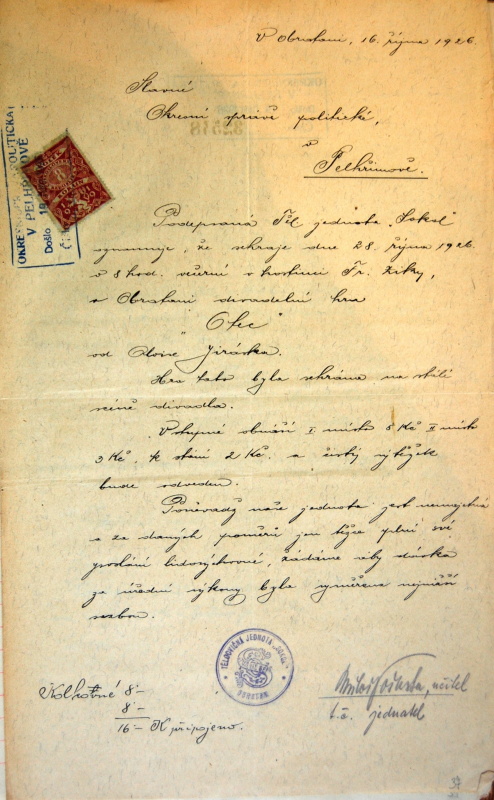 V Obratani, 16. října 1926.
Slavné
Okresní správě politické,
v
Pelhřimově.
OKRESNÍ POLITICKÁ
V PELHŘIMOVĚ
Došlo
8
Podepsaná Těl. jednota "Sokol"
oznamuje, že sehraje dne 28. října 1926
v 8 hod. večerní v hostinci Fr. Ziky,
v Obratani divadelní hru
"Otec"
od Aloise Jiráska.
Hra tato byla sehrána na stálé
scéně divadla.
Vstupné obnáší I místo 5 Kč II místo
3 Kč, k stání 2 Kč. a čistý výtěžek
bude odveden.
Poněvadž naše jednota jest nemajetná
a za daných poměrů jen těžce plní své
poslání lidovýchovné, žádáme aby dávka
za úřední výkony byla vyměřena nejnižší
sazbou.
TĚLOCVIČNÁ JEDNOTA "SOKOL"
OBRATAŇ
Kolkovné 8·-
8·-
16·- K připojeno.
učitel
t.č. jednatel